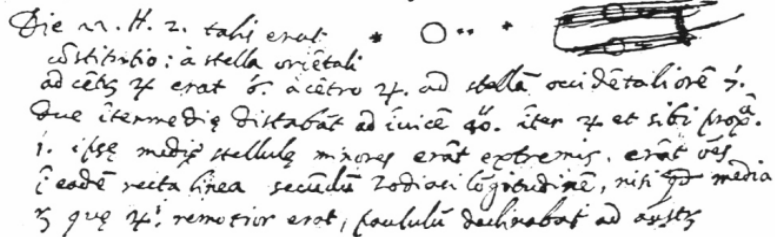 Die 22. H. 2. talis erat
cõstitutio: à stella oriẽtali
ad cẽtꝝ ♃ erat à cẽtro ♃. ad stellã occidẽtaliorẽ 7.
Due ĩtermedię distabãt ad ĩuicẽ 40". ĩter ♃ et sibi propã.
1. ipsę medię stellulę minores erãt extremis. erãt oẽs
ĩ eadẽ recta linea secũdũ Zodiaci lõgitudinẽ, nisi qđ media
ꝝ quę ♃i remotior erat, paululũ declinabat ad austꝝ